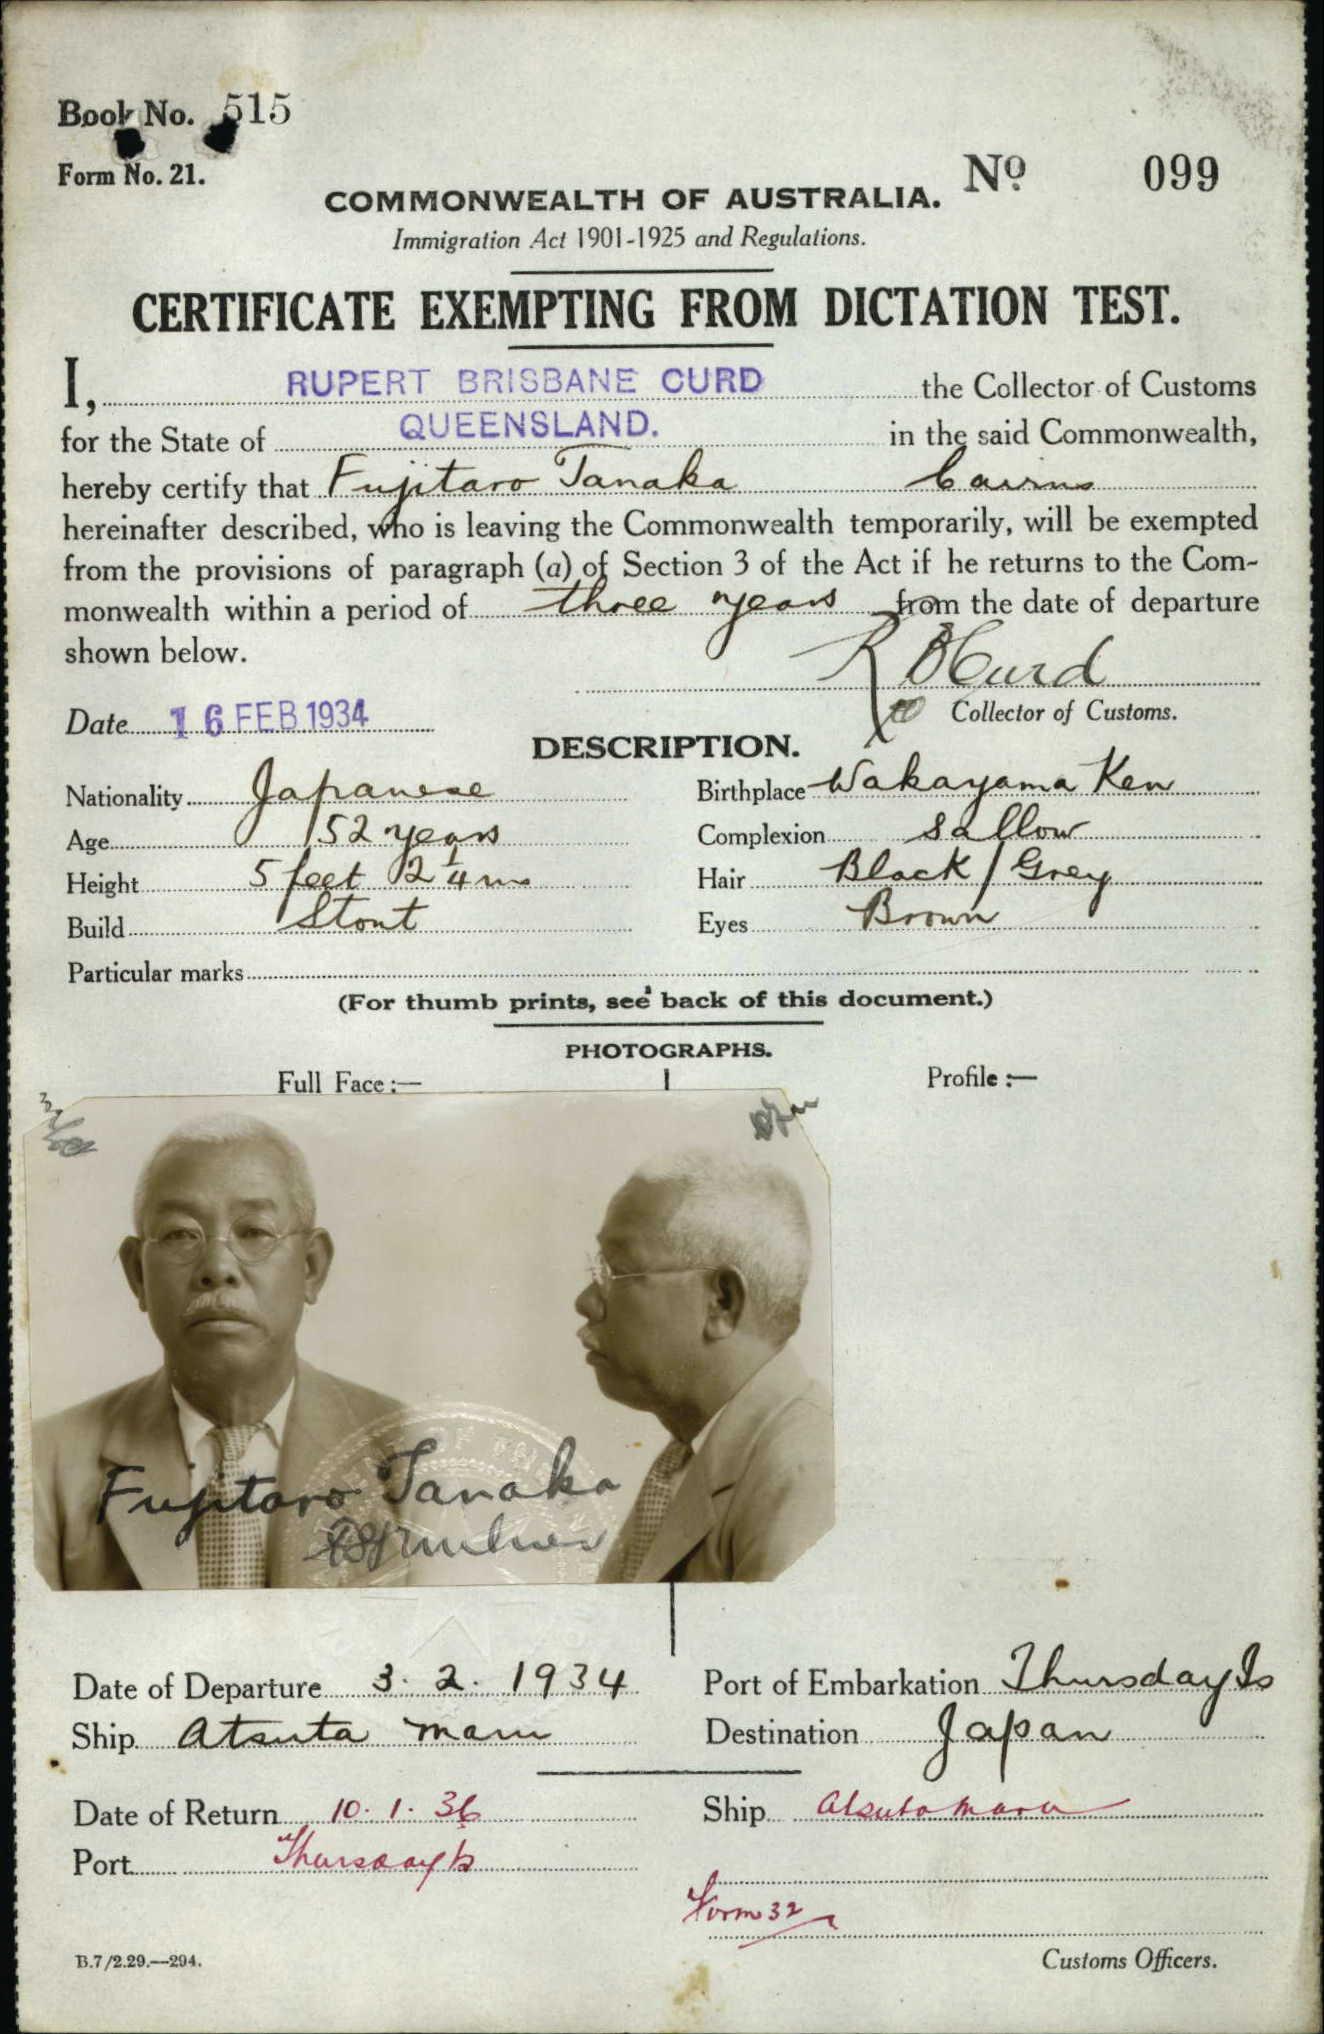 Book No. 515
Form No. 21.
No 099
COMMONWEALTH OF AUSTRALIA.
Immigration Act 1901-1925 and Regulations.
CERTIFICATE EXEMPTING FROM DICTATION TEST.
I, RUPERT BRISBANE CURD the Collector of Customs
for the State of QUEENSLAND. in the said Commonwealth,
hereby certify that Fujitaro Tanaka Cairns
hereinafter described, who is leaving the Commonwealth temporarily, will be exempted
from the provisions of paragraph (a) of Section 3 of the Act if he returns to the Com-
monwealth within a period of three years from the date of departure
shown below.
R B Curd
Date 16 FEB 1934
Collector of Customs.
DESCRIPTION.
Nationality Japanese Birthplace Wakayama Ken
Age 52 years Complexion Sallow
Height 5 feet 2 1/4 ins Hair Black / Grey
Build Stout Eyes Brown
Particular marks
(For thumb prints, see back of this document.)
PHOTOGRAPHS.
Full Face:— Profile:—
Fujitaro Tanaka
Date of Departure 3. 2. 1934 Port of Embarkation Thursday Is
Ship Atsuta Maru Destination Japan
Date of Return 10. 1. 36 Ship Atsuta Maru
Port Thursday Is
Form 32
B.7/2.29.—294.
Customs Officers.